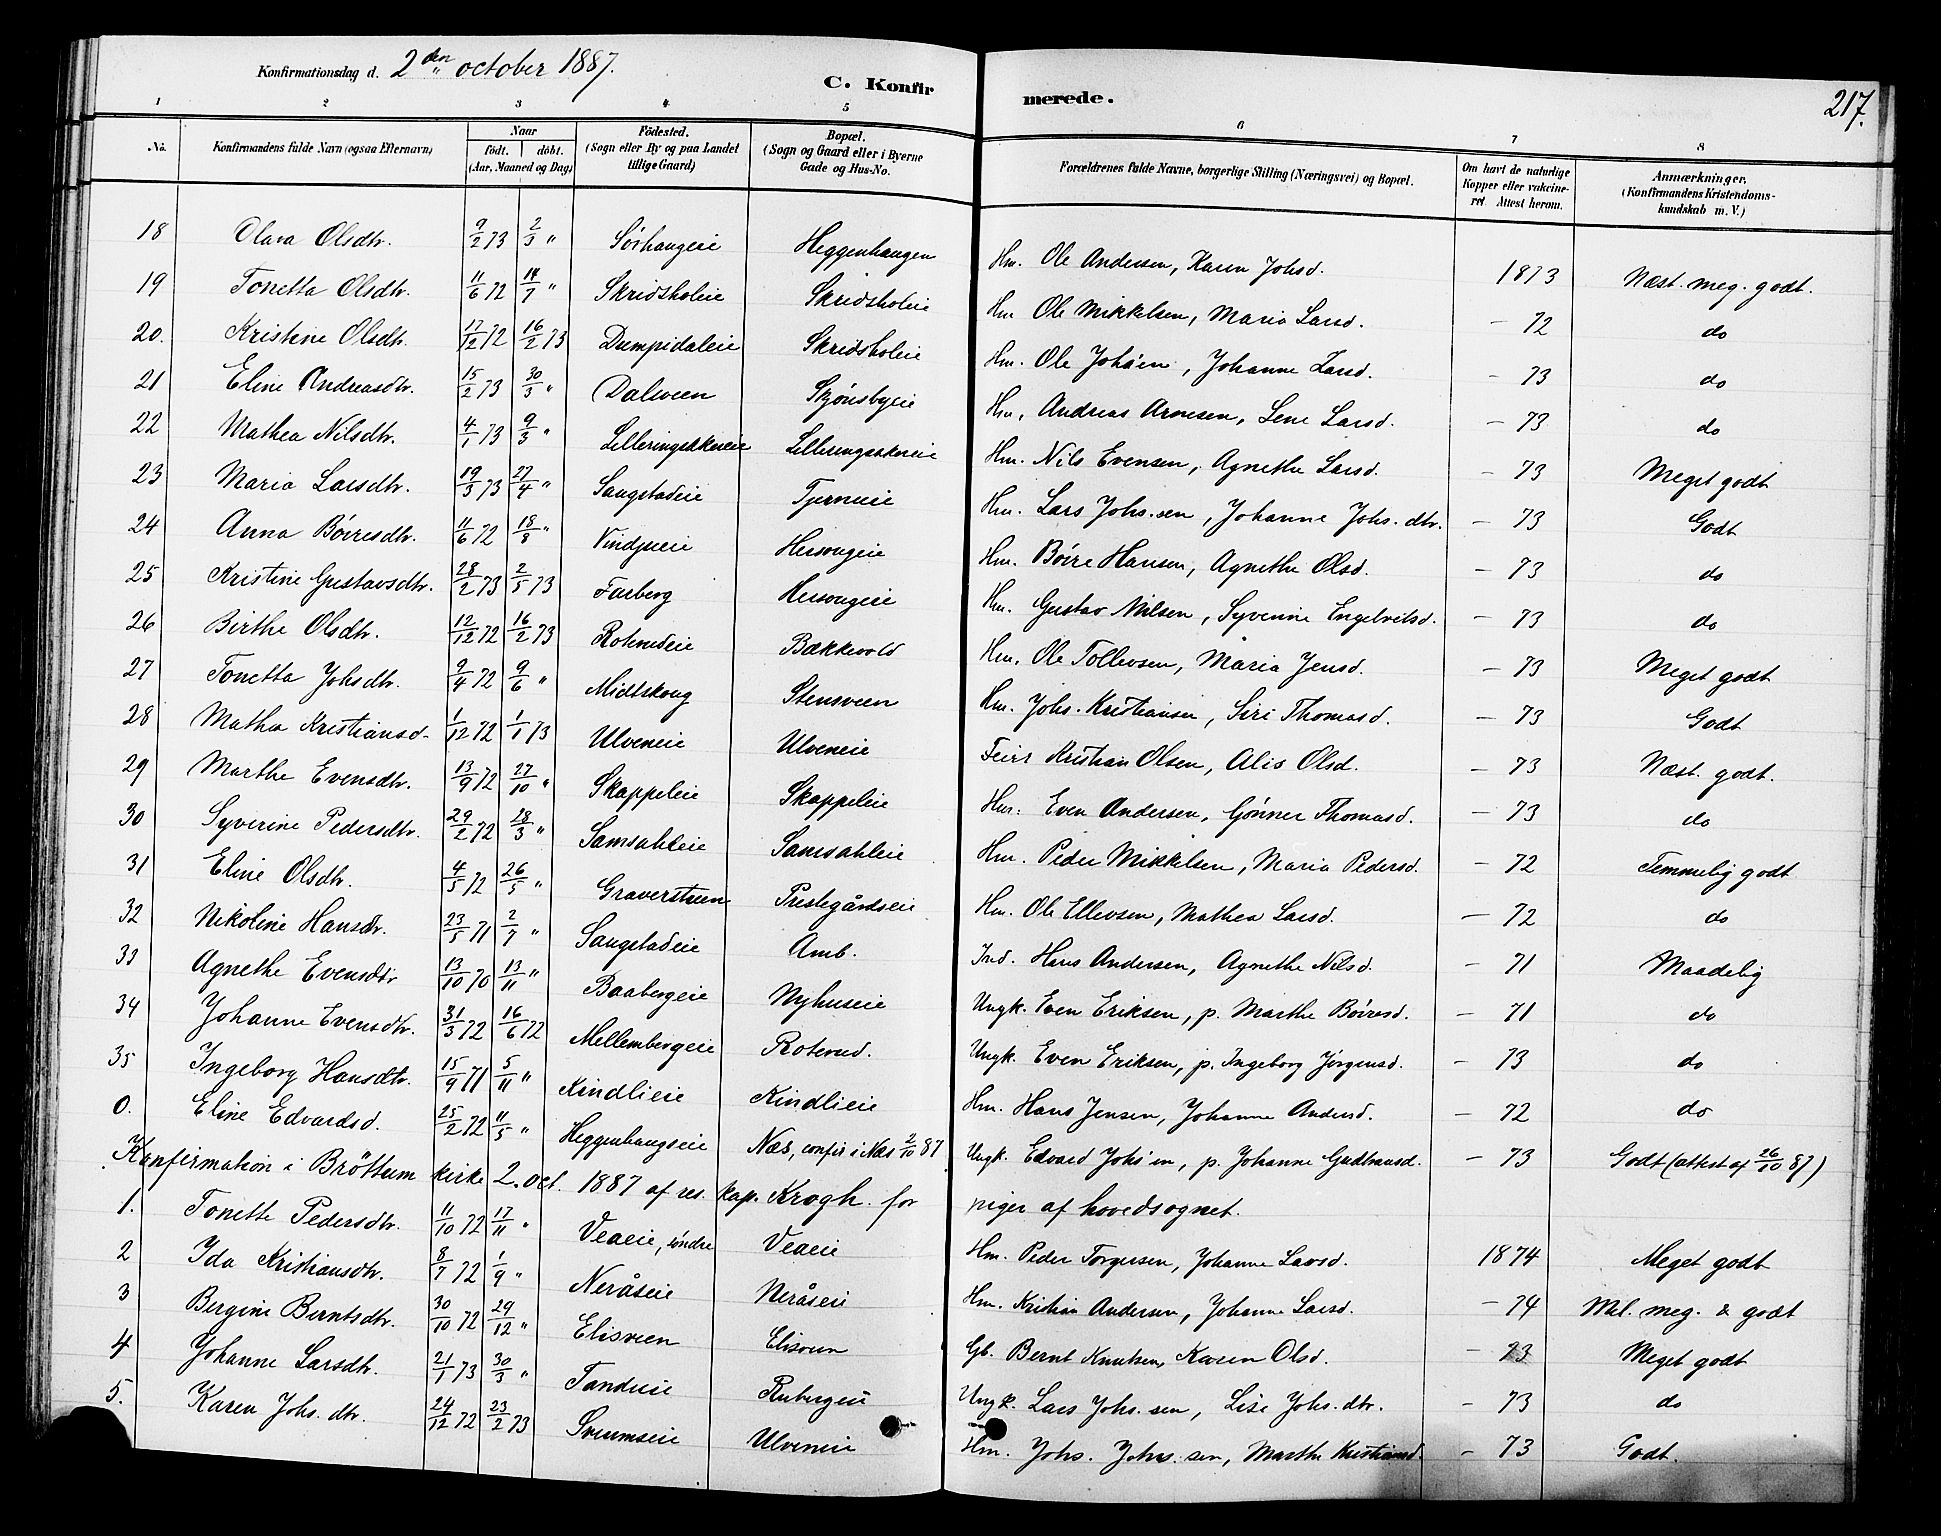 Konfirmationsdag d. 2den october 1887.
C. Konfirmerede.
217.
1 2 3 4 5 6 7 8
No. Konfirmandens fulde Navn (ogsaa Efternavn) Naar født. døbt. (Aar, Maaned og Dag) Fødested. (Sogn eller By og paa Landet tillige Gaard) Bopæl. (Sogn og Gaard eller i Byerne Gade og Hus-No. Forældrenes fulde Navne, borgerlige Stilling (Næringsvei) og Bopæl. Om havt de naturlige Kopper eller vakcineret Attest herom. Anmærkninger. (Konfirmandens Kristendomskundskab m. V.)
18 Olava Olsdtr. 9/2 73 2/3 " Sørhaugeie Heggenhaugen Hm. Ole Andersen, Karen Johsd. 1873 Næst. meg. godt.
19 Tonetta Olsdtr. 11/6 72 14/7 " Skridsholeie Skridsholeie Hm Ole Mikkelsen, Maria Larsd. - 72 do
20. Kristine Olsdtr. 17/12 72 16/2 73 Dumpidaleie Skridsholeie Hm. Ole Johs'en, Johanne Larsd. - 73 do
21 Eline Andreasdtr. 15/2 73 30/3 " Dalsveen Skjønsbyeie Hm. Andreas Arnesen, Lene Larsd. - 73 do
22 Mathea Nilsdtr. 4/1 73 9/3 " Lilleringsakereie Lilleringsakereie Hm. Nils Evensen, Agnethe Larsd. - 73 Meget godt
23 Maria Larsdtr. 19/3 73 27/4 " Saugstadeie Tjerneie Hm. Lars Johs.sen, Johanne Johs.dtr. - 73 Godt
24 Anna Böiresdtr. 11/6 72 18/8 " Vindjueie Hersougeie Hm. Böire Hansen, Agnethe Olsd. - 73 do
25 Kristine Gustavsdtr. 28/2 73 2/5 73 Farberg Hersougeie Hm. Gustav Nilsen, Syverine Engelvilsd. - 73 do
26 Birthe Olsdtr. 12/12 72 16/2 73 Rolmdeie Bækkevold Hm. Ole Tollevsen, Maria Jensd. - 73 Meget godt
27 Tonetta Johsdtr. 9/4 72 9/6 " Midtskoug Stensveen Hm. Johs. Kristiansen, Siri Thomasd. - 73 Godt
28 Mathea Kristiansd. 1/12 72 1/1 73 Ulveneie Ulveneie Feier Kristian Olsen, Alis Olsd. - 73 Næst. godt.
29 Marthe Evensdtr. 13/9 72 27/10 " Skappeleie Skappeleie Hm. Even Andersen, Gønner Thomasd. - 73 do
30 Syverine Pedersdtr. 29/2 72 28/3 " Samsahleie Samsahleie Hm. Peder Mikkelsen, Maria Pedersd. - 72 Temmelig godt
31 Eline Olsdtr. 4/5 72 26/5 " Graverstuen Prestegårdseie Hm. Ole Ellevsen, Mathea Larsd. - 72 do
32 Nikoline Hansdtr. 23/5 71 2/7 " Saugstadeie Amb. Ind. Hans Andersen, Agnethe Nilsd. - 71 Maadelig
33 Agnethe Evensdtr 13/10 70 13/11 " Baabergeie Nyhuseie Ungk. Even Eriksen, p. Marthe Böiresd. - 71 do
34 Johanne Evensdtr. 31/3 72 16/6 72 Mellembergeie Roterud. Ungk. Even Eriksen, p. Ingeborg Jørgensd. - 73 do
35 Ingeborg Hansdtr. 15/9 71 5/11 " Kindlieie Kindlieie Hm. Hans Jensen, Johanne Andersd. - 72 do
0. Eline Edvardsd. 25/2 72 11/5 " Heggenhaugseie Næs, confir. i Næs 2/10 87 Ungk. Edvard Johs'en, p. Johanne Gudbransd. - 73 Godt (attest af 26/10 87)
Konfirmation i Bröttum kirke 2. oct. 1887 af res. kap. Krogh for piger af hovedsognet.
1. Tonette Pedersdtr. 11/10 72 17/11 " Veaeie, søndre Veaeie Hm. Peder Torgersen, Johanne Larsd. 1874 Meget godt
2 Ida Kristiansdtr. 8/7 72 1/9 " Neråseie Neråseie Hm. Kristian Andersen, Johanne Larsd. - 74 Mel. meg. & godt
3 Bergine Berntsdtr. 30/10 72 29/12 " Elisveen Elisveen Gb. Bernt Knutsen, Karen Olsd. - 73 Meget godt
4 Johanne Larsdtr. 21/1 73 30/3 " Tandeie Rubergeie Ungk. Lars Johs.sen, Lise Johs.dtr. - 73 do
5. Karen Johs.dtr. 24/12 72 23/2 73 Sveumseie Ulveneie Hm. Johs. Johs.sen, Marthe Kristiansd. - 73 Godt.